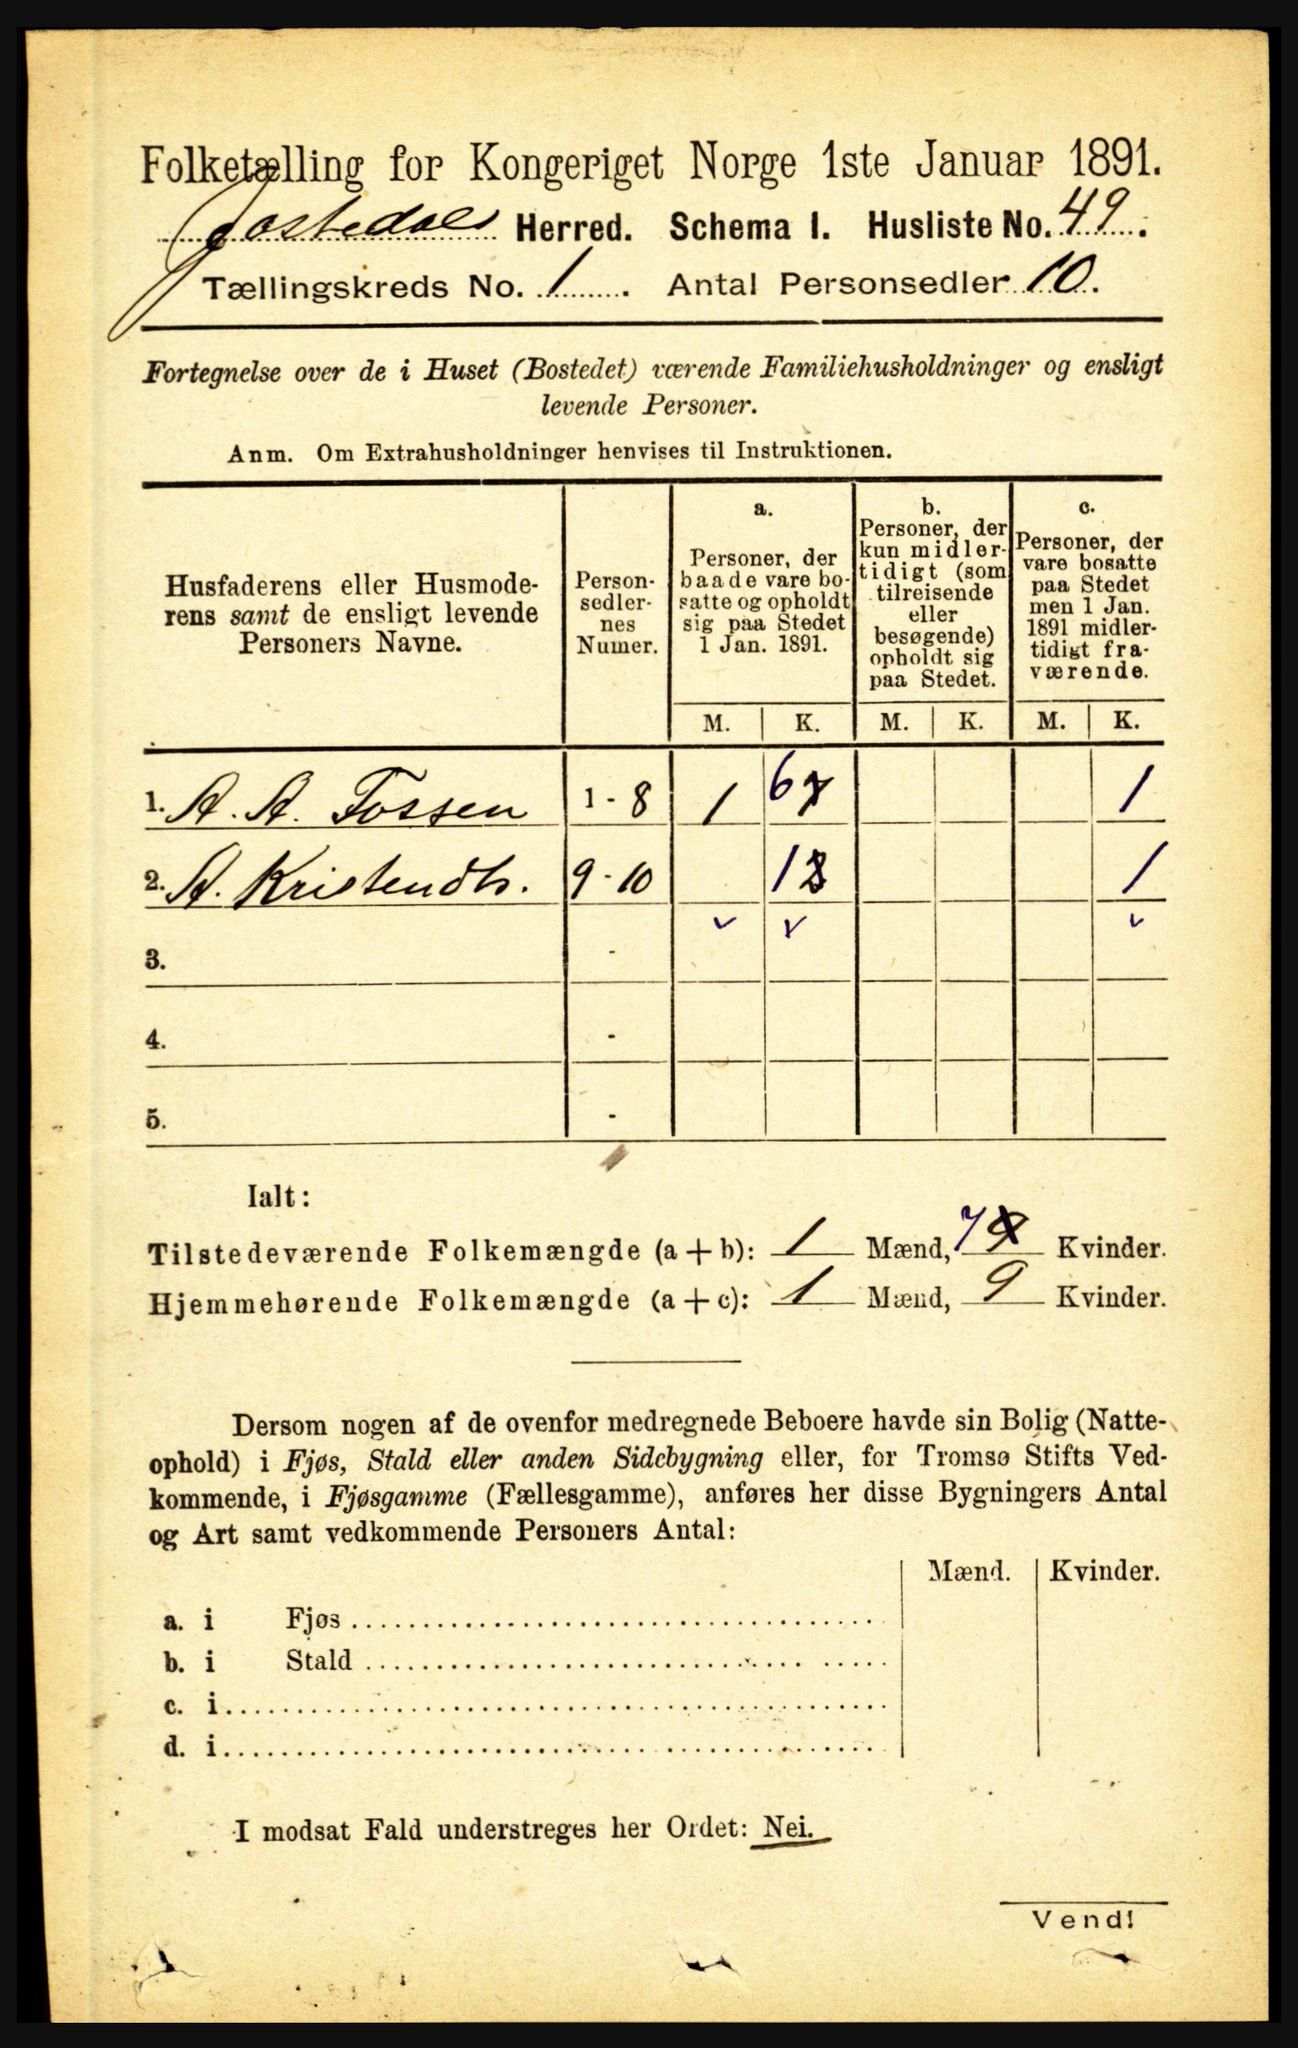 Folketælling for Kongeriget Norge 1ste Januar 1891.
Jostedals Herred. Schema I. Husliste No. 49.
Tællingskreds No. 1. Antal Personsedler 10.
Fortegnelse over de i Huset (Bostedet) værende Familiehusholdninger og ensligt
levende Personer.
Anm. Om Extrahusholdninger henvises til Instruktionen.
Husfaderens eller Husmode-
rens samt de ensligt levende
Personers Navne.
Person-
sedler-
nes
Numer.
a.
Personer, der
baade vare bo-
satte og opholdt
sig paa Stedet
1 Jan. 1891.
b.
Personer, der
kun midler-
tidigt (som
tilreisende
eller
besøgende)
opholdt sig
paa Stedet.
c.
Personer, der
vare bosatte
paa Stedet
men 1 Jan.
1891 midler-
tidigt fra-
værende.
M. K. M. K. M. K.
1. A. A. Fossen 1 - 8 1 6 7 1
2. A. Kristendtr. 9 - 10 1 2 1
3. -
4. -
5. -
Ialt:
Tilstedeværende Folkemængde (a + b): 1 Mænd, 7 9 Kvinder.
Hjemmehørende Folkemængde (a + c): 1 Mænd, 9 Kvinder.
Dersom nogen af de ovenfor medregnede Beboere havde sin Bolig (Natte-
ophold) i Fjøs, Stald eller anden Sidebygning eller, for Tromsø Stifts Ved-
kommende, i Fjøsgamme (Fællesgamme), anføres her disse Bygningers Antal
og Art samt vedkommende Personers Antal:
Mænd. Kvinder.
a. i Fjøs
b. i Stald
c. i
d. i
I modsat Fald understreges her Ordet: Nei.
Vend!